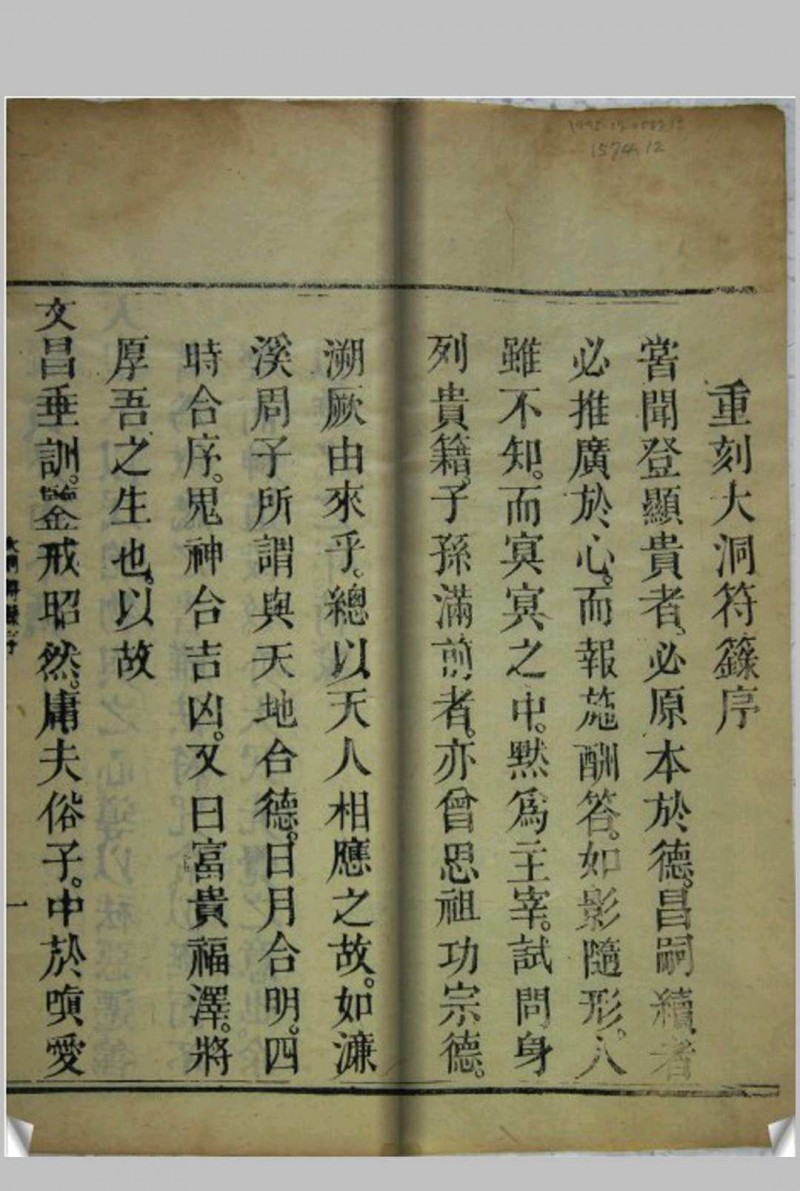 重刻大洞符籙序
嘗聞登顯貴者。必原本於德。昌嗣續者
必推廣於心。而報施酬答。如影隨形。人
雖不知。而冥冥之中。黙爲主宰。試問身
列貴籍。子孫滿前者。亦曾思祖功宗德。
溯厥由來乎。總以天人相應之故。如濂
溪周子所謂與天地合德。日月合明。四
時合序。鬼神合吉凶。又曰富貴福澤。將
厚吾之生也。以故
文昌垂訓。鑒戒昭然。庸夫俗子。中於嗔愛
一
1574.12